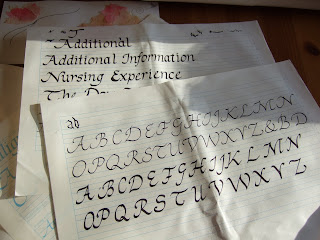 Additional
Additional Information
Nursing Experience
The Day
ab
ABCDEFGHIJKLMN
OPQRSTUVWXYZ&BD
ABCDEFGHIJKLMN
OPQRSTUVWXYZ